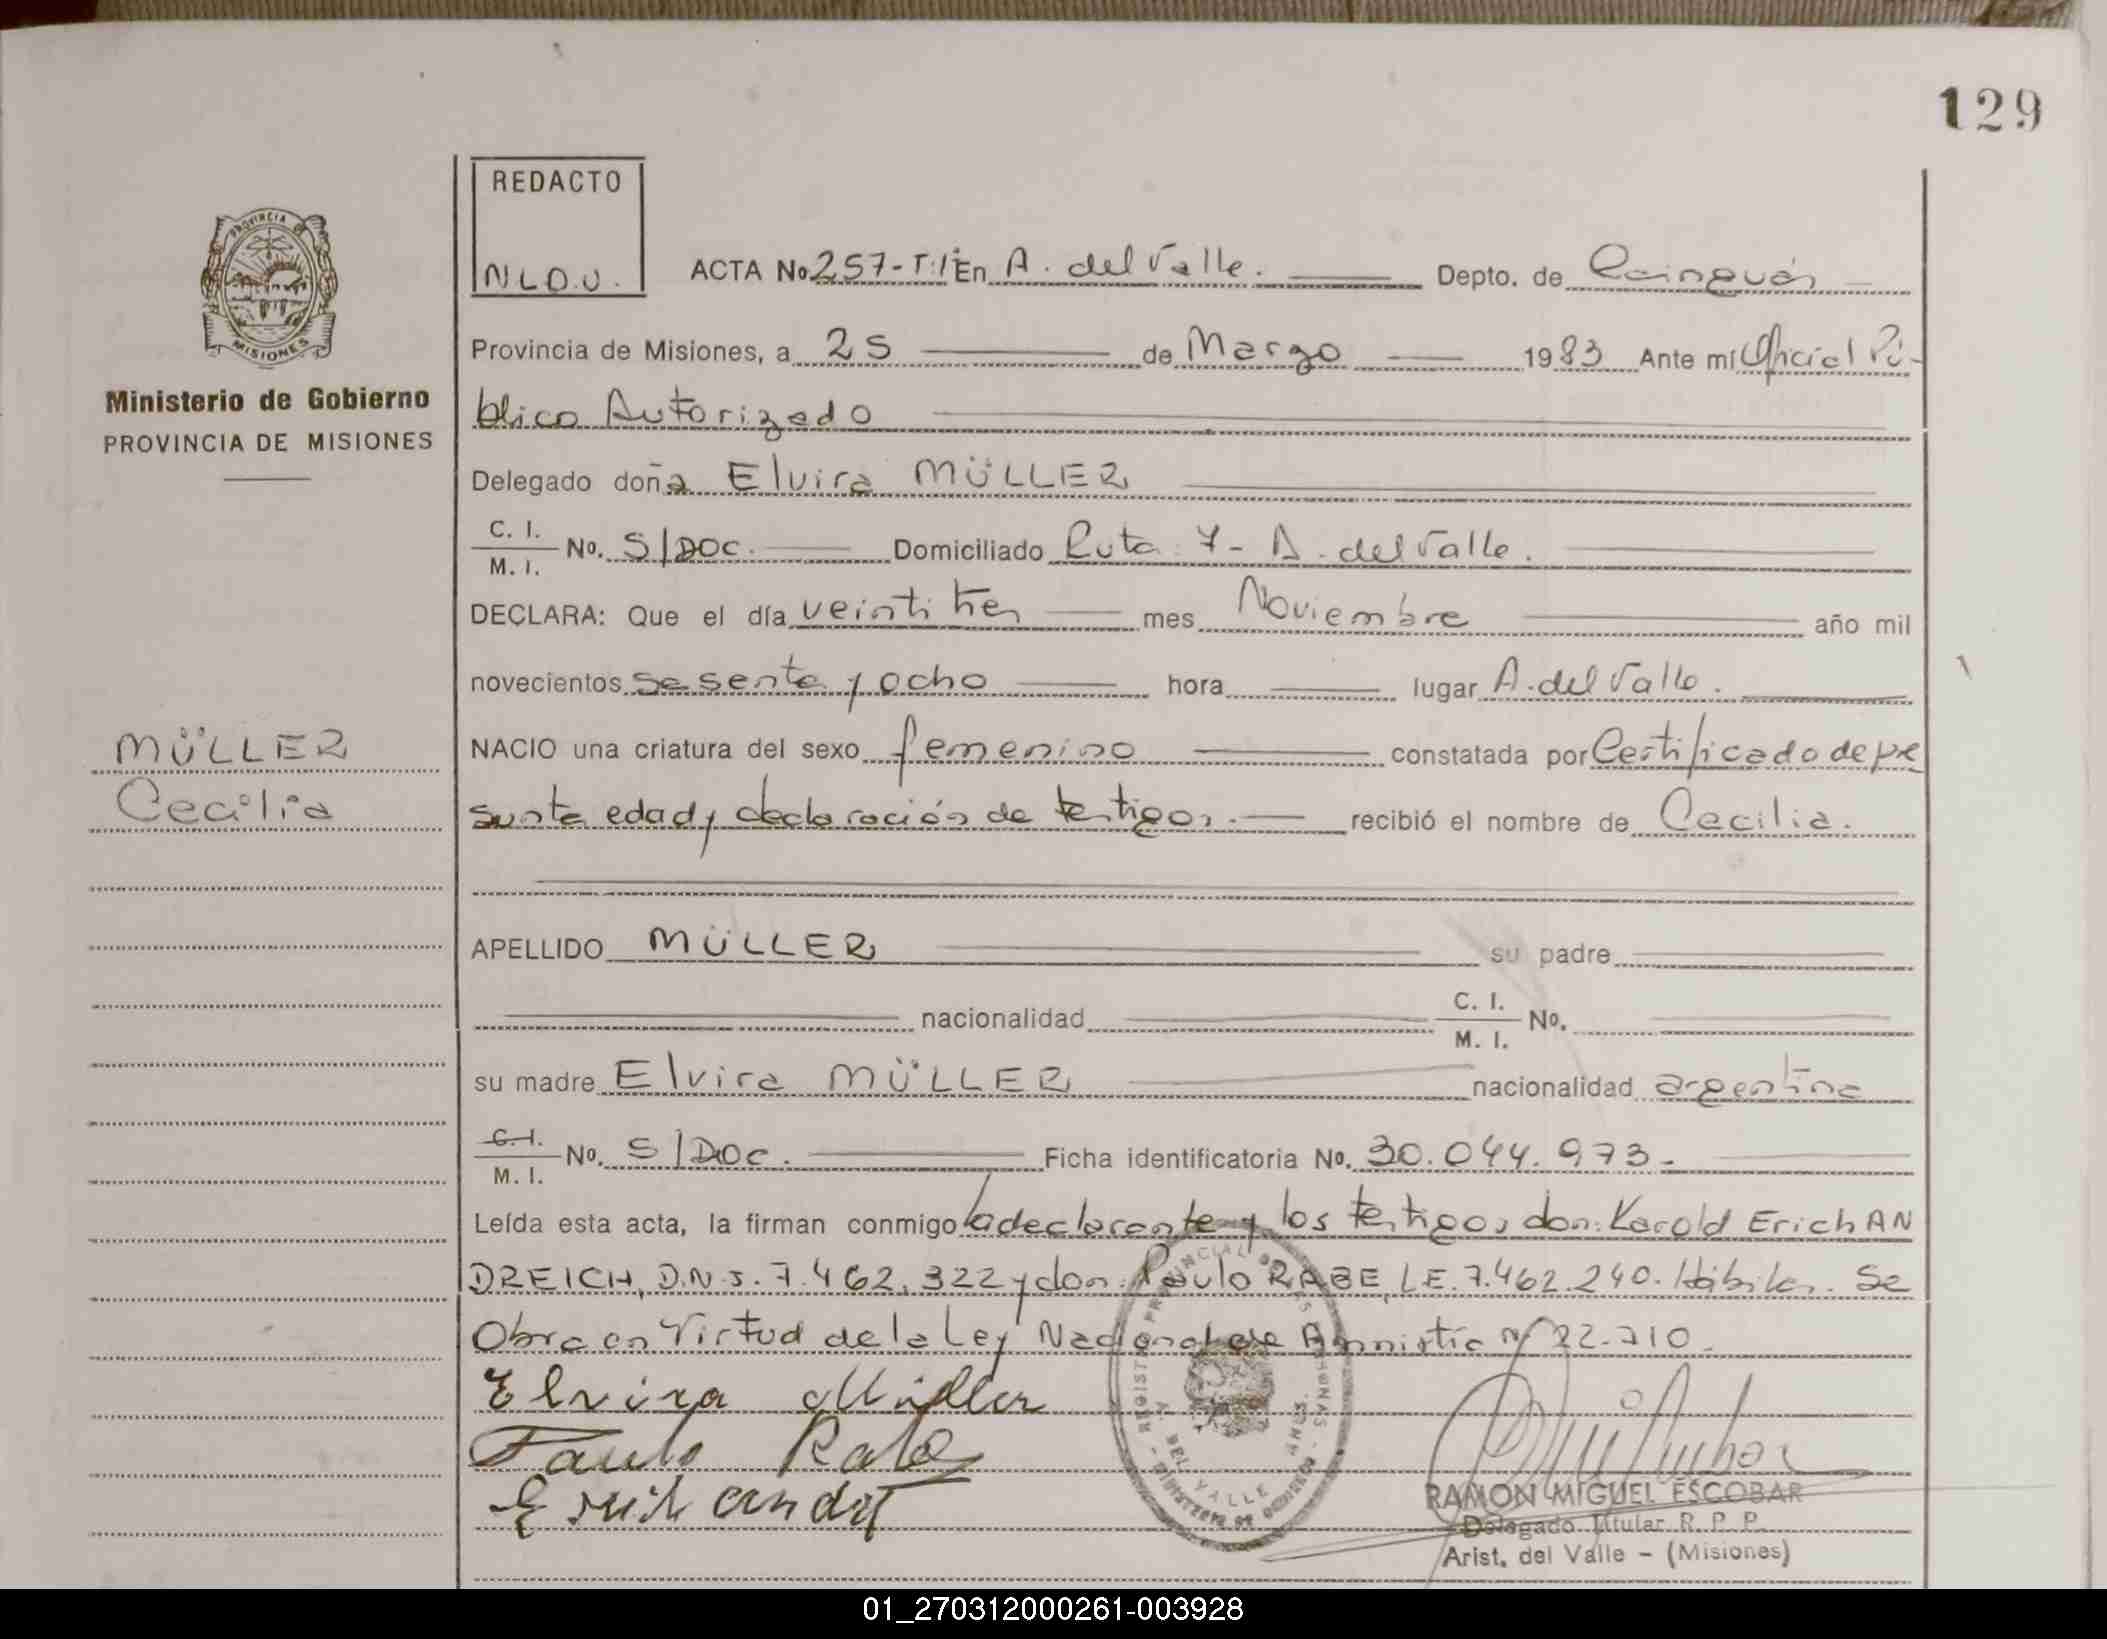 129
REDACTO
N.L.D.U.
PROVINCIA
MISIONES
Ministerio de Gobierno
PROVINCIA DE MISIONES
ACTA No 257-T:1 En A. del Valle. Depto. de Cainguás
Provincia de Misiones, a 25 de Marzo 1983 Ante mí Oficial Pú-
blico Autorizado
Delegado doña Elvira MÜLLER
C. I. / M. I. No. S/DOC. Domiciliado Ruta 7 - A. del Valle.
DECLARA: Que el día veintitres mes Noviembre año mil
novecientos sesenta y ocho hora lugar A. del Valle.
MÜLLER
Cecilia
NACIO una criatura del sexo femenino constatada por Certificado de pre
sunta edad y declaración de testigos. recibió el nombre de Cecilia.
APELLIDO MÜLLER su padre
nacionalidad C. I. / M. I. No.
su madre Elvira MÜLLER nacionalidad argentina
C. I. / M. I. No. S/DOC. Ficha identificatoria No. 30.044.973.-
Leída esta acta, la firman conmigo la declarante y los testigos don: Karold Erich AN
DREICH, D.N.I. 7.462.322 y don: Paulo RABE, L.E. 7.462.240. Hábiles. Se
Obra en Virtud de la Ley Nacional de Amnistía nº 22.710.
Elvira Müller
Paulo Rabe
RAMON MIGUEL ESCOBAR
Delegado Titular R. P. P.
Arist. del Valle - (Misiones)
01_270312000261-003928